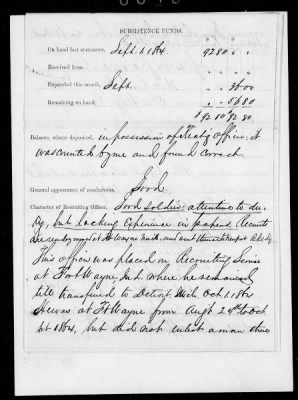 SUBSISTENCE FUNDS.
On hand last statement, Sept. 1. 1864 9280 " "
Received from " "
Expended this month, Sept. " " 3600
Remaining on hand, " " 5680
9280 9280
Balance, where deposited, in possession of Rectg Officer: It
was counted by me and found correct.
General appearance of rendezvous, Good.
Character of Recruiting Officer, Good soldier: attentive to du-
ty, but lacking Experience in papers. Recruits
are rendezvoused at Ft Wayne Mich. and sent thence to
This officer was placed on Recruiting Service
at Fort Wayne, Ind. where he remained
till transferred to Detroit Mich. Oct 1, 1864
He was at Ft Wayne from Augt 24th to Oct
1st 1864, but did not enlist a man there